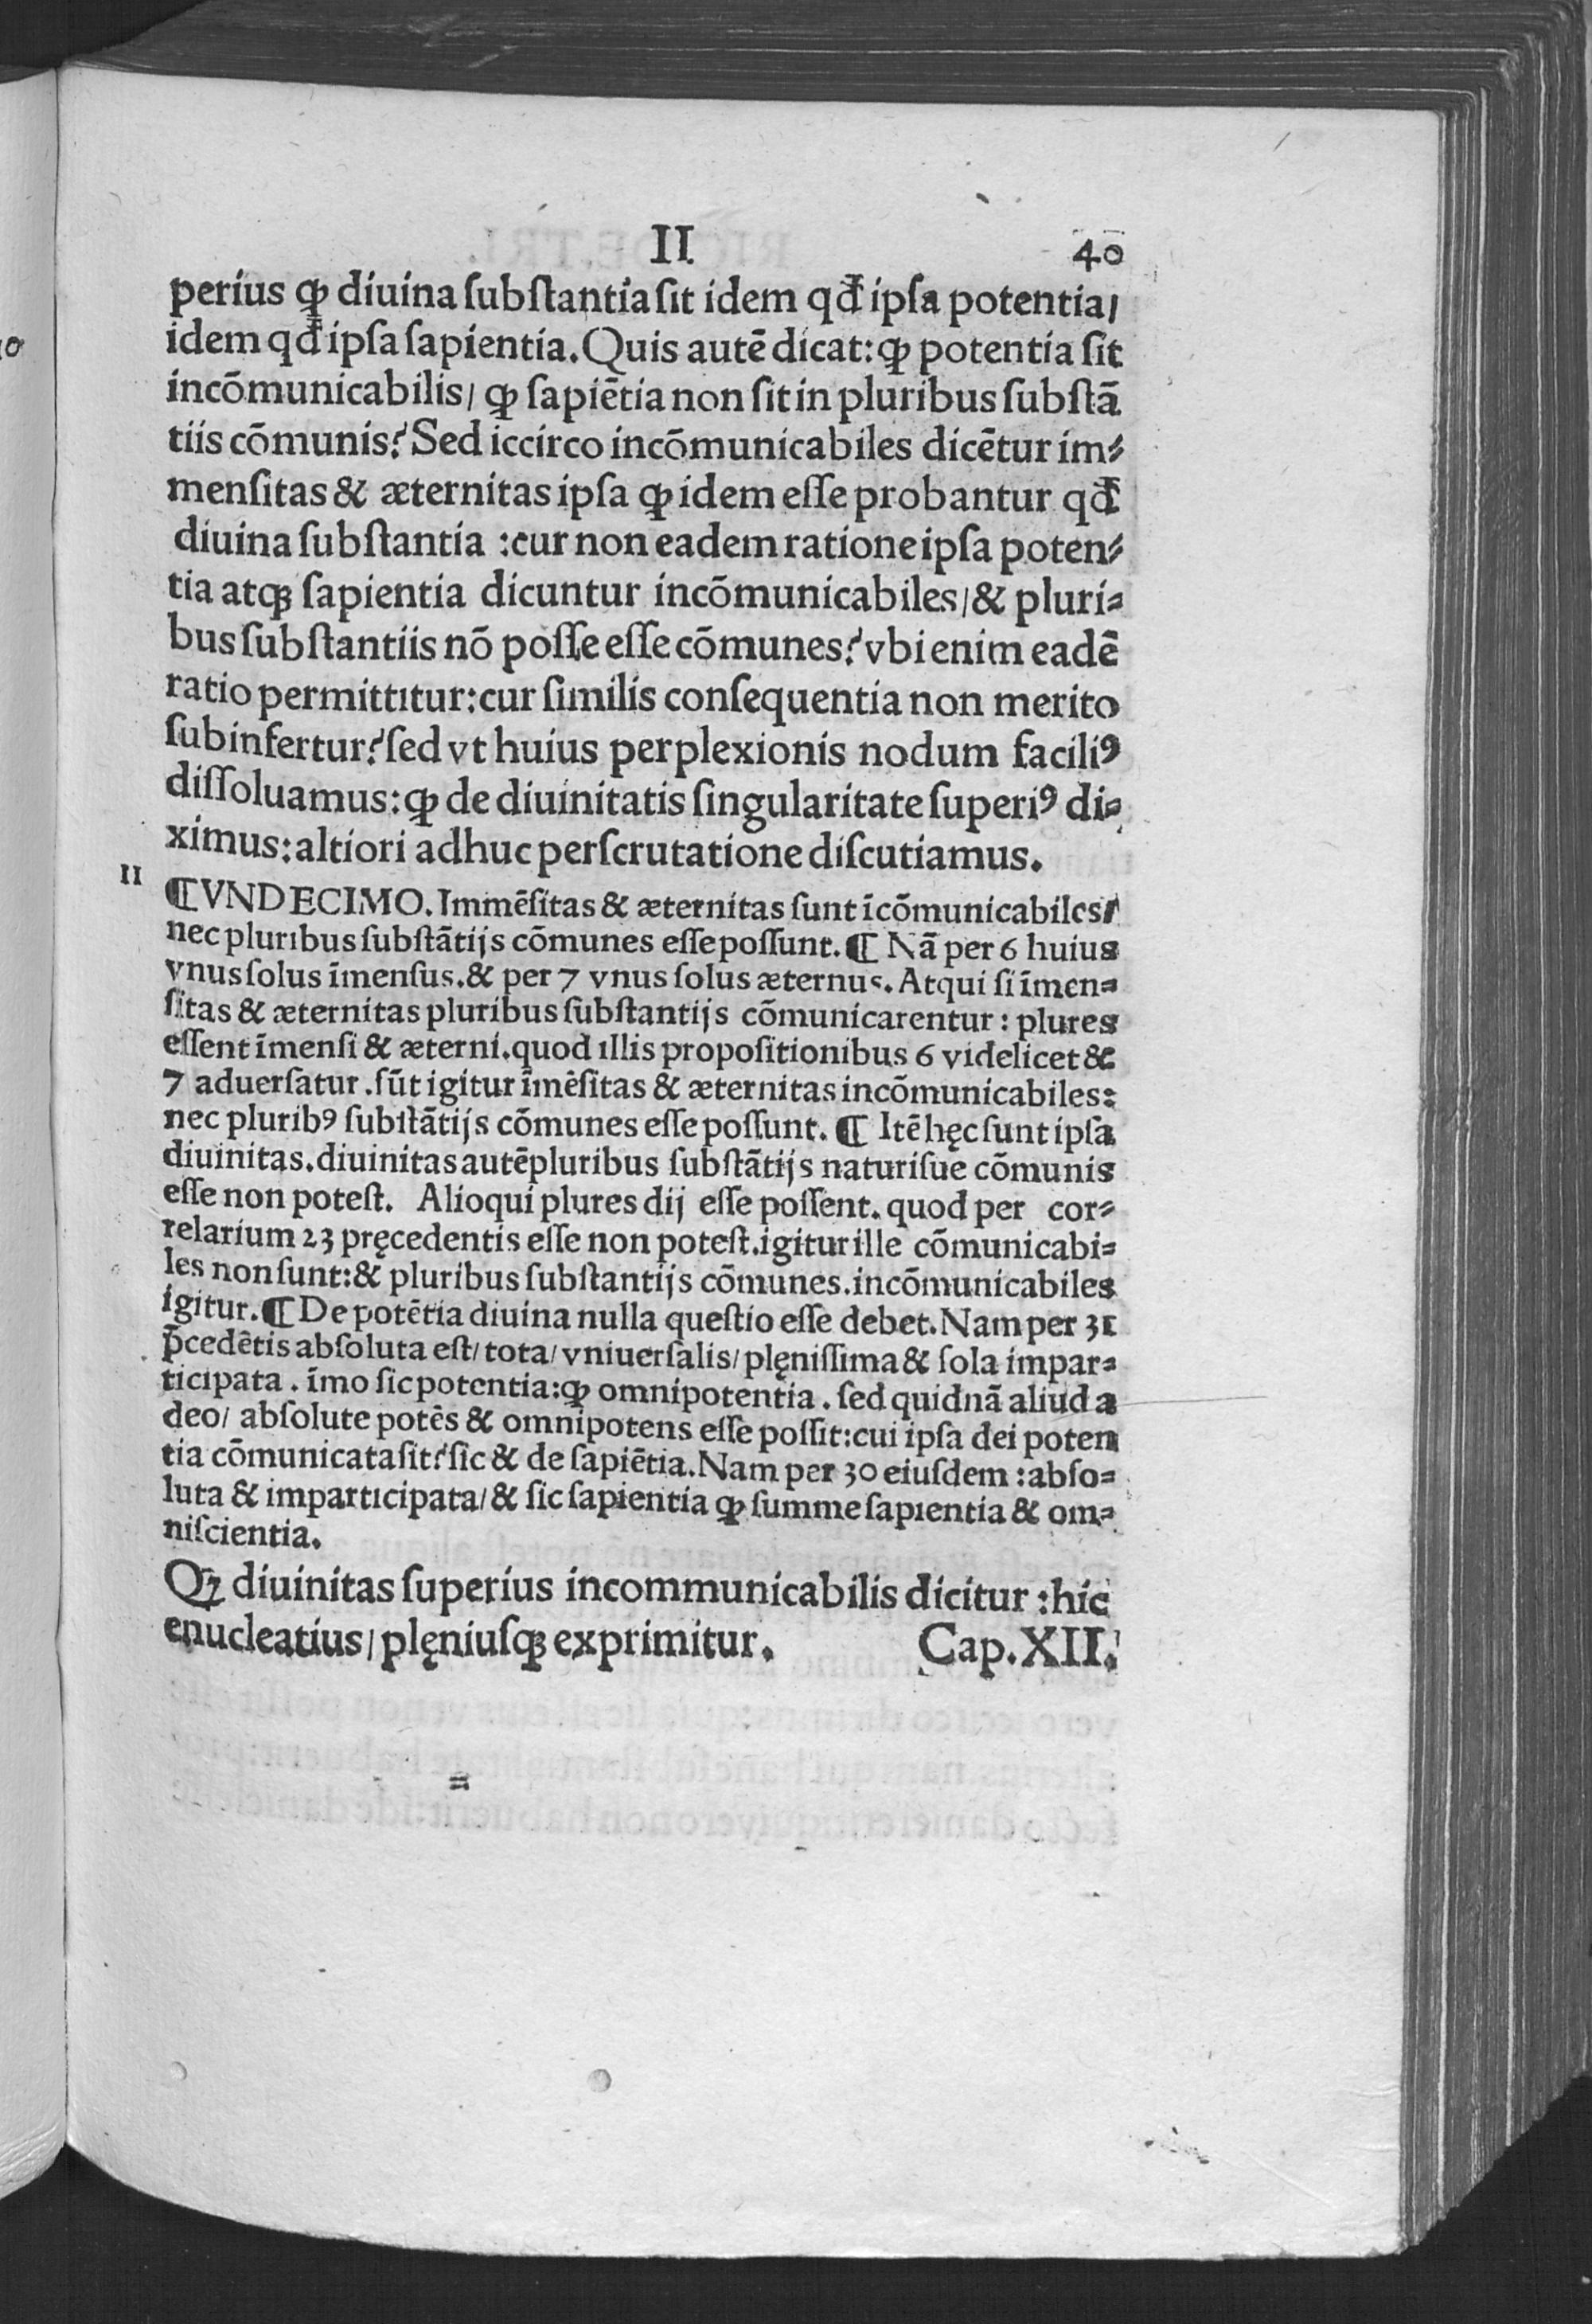 II
40
perius ꝙ diuina ſubſtantia ſit idem qđ ipſa potentia/
idem qđ ipſa ſapientia. Quis autē dicat: ꝙ potentia ſit
incōmunicabilis/ ꝙ ſapiētia non ſit in pluribus ſubſtā
tiis cōmunis? Sed iccirco incōmunicabiles dicētur im⸗
menſitas & æternitas ipſa ꝙ idem eſſe probantur qđ
diuina ſubſtantia :cur non eadem ratione ipſa poten⸗
tia atqꝫ ſapientia dicuntur incōmunicabiles/ & pluri⸗
bus ſubſtantiis nō poſſe eſſe cōmunes? vbi enim eadē
ratio permittitur: cur ſimilis conſequentia non merito
ſubinfertur? ſed vt huius perplexionis nodum faciliꝰ
diſſoluamus: ꝙ de diuinitatis ſingularitate ſuperiꝰ di⸗
ximus: altiori adhuc perſcrutatione diſcutiamus.
II
¶VNDECIMO. Immēſitas & æternitas ſunt īcōmunicabiles/
nec pluribus ſubſtātijs cōmunes eſſe poſſunt. ¶ Nā per 6 huius
vnus ſolus īmenſus. & per 7 vnus ſolus æternus. Atqui ſi īmen⸗
ſitas & æternitas pluribus ſubſtantijs cōmunicarentur : plures
eſſent īmenſi & æterni. quod illis propoſitionibus 6 videlicet &
7 aduerſatur. ſūt igitur īmēſitas & æternitas incōmunicabiles:
nec pluribꝰ ſubſtātijs cōmunes eſſe poſſunt. ¶ Itē hęc ſunt ipſa
diuinitas. diuinitas autē pluribus ſubſtātijs naturiſue cōmunis
eſſe non poteſt. Alioqui plures dij eſſe poſſent. quod per cor⸗
relarium 23 pręcedentis eſſe non poteſt. igitur ille cōmunicabi⸗
les non ſunt: & pluribus ſubſtantijs cōmunes. incōmunicabiles
igitur. ¶ De potētia diuina nulla queſtio eſſe debet. Nam per 31
p̄cedētis abſoluta eſt/ tota/ vniuerſalis/ plęniſſima & ſola impar⸗
ticipata. īmo ſic potentia: ꝙ omnipotentia. ſed quidnā aliud a
deo/ abſolute potēs & omnipotens eſſe poſſit: cui ipſa dei poten
tia cōmunicata ſit? ſic & de ſapiētia. Nam per 30 eiuſdem : abſo⸗
luta & imparticipata/ & ſic ſapientia ꝙ ſumme ſapientia & om⸗
niſcientia.
Qꝫ diuinitas ſuperius incommunicabilis dicitur : hic
enucleatius/ plęniuſqꝫ exprimitur. Cap. XII.